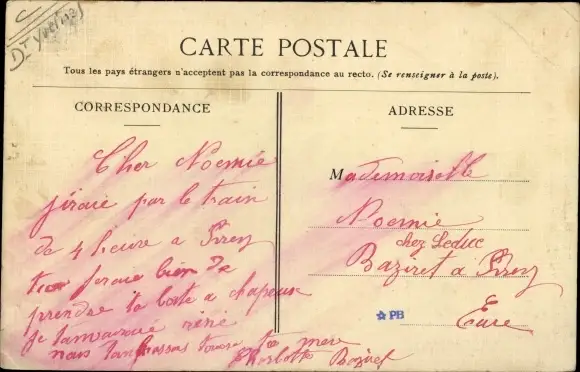 Dt Yvelines
CARTE POSTALE
Tous les pays étrangers n'acceptent pas la correspondance au recto. (Se renseigner à la poste).
CORRESPONDANCE
Cher Noemie
jiraie par le train
de 4 heure a Prey
tu feraie bien de
prendre ta boite a chapeux
Je tanvaraie réné
nous tous
ta mère
Charlotte Baziret
ADRESSE
Mademoiselle
Noemie
chez Leduc
Baziret a Prey
PB
Eure